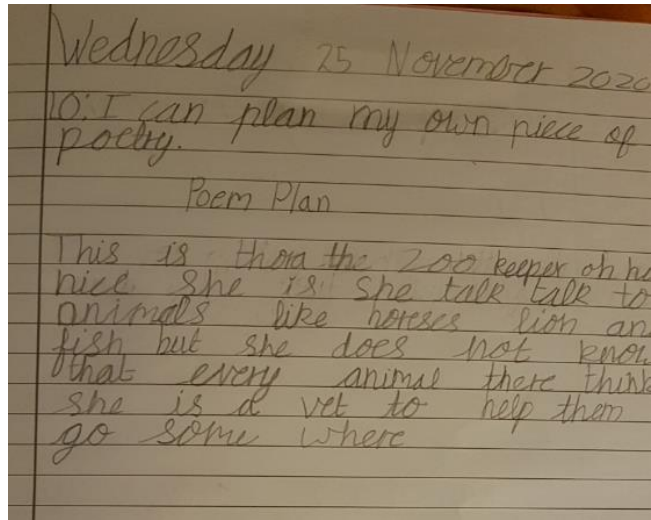 Wednesday 25 November 2020
LO: I can plan my own piece of
poetry.
Poem Plan
This is thora the zoo keeper oh ho
nice she is she talk talk to
animals like horeses lion an
fish but she does not know
that every animal there think
she is a vet to help them
go some where